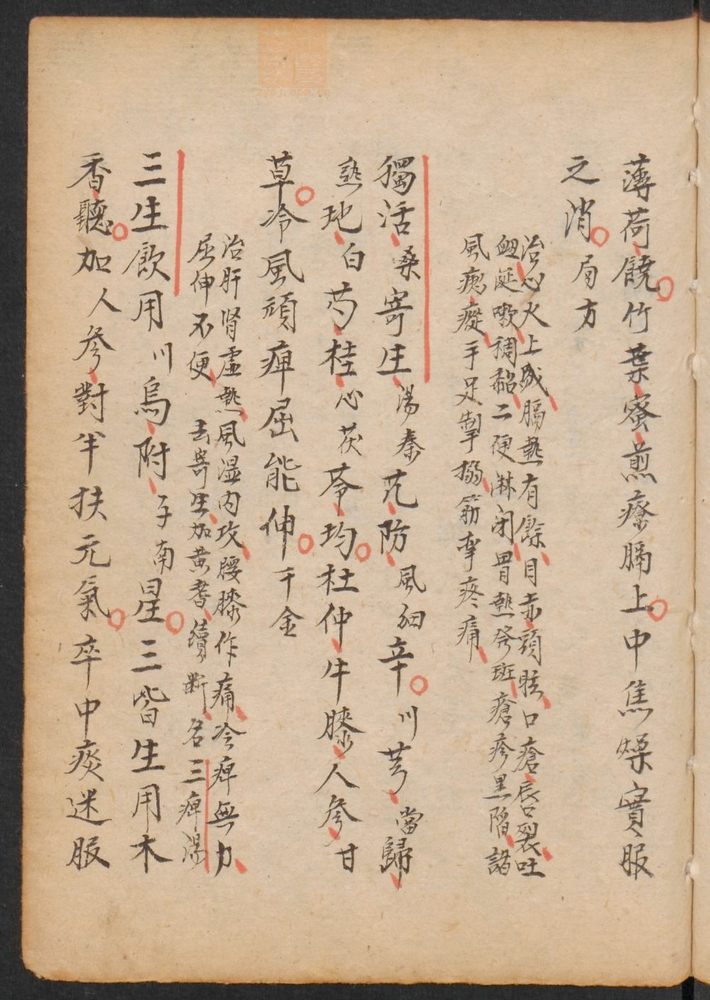 薄荷饒竹葉蜜煎療膈上中焦燥實服
之消局方
治心火上盛膈熱有餘目赤頭眩口瘡唇裂吐
衂涎嗽稠粘二便淋闭胃熱發班瘡疹黑陷諸
風瘈瘲手足掣搦筋挛疼痛
獨活桑寄生湯秦艽防風細辛川芎當歸
熟地白芍桂心茯苓均杜仲牛膝人參甘
草冷風頑痺屈能伸千金
治肝肾虚熱風湿内攻腰膝作痛冷痺無力
屈伸不便去寄生加黄耆續断名三痺湯
三生飲用川烏附子南星三皆生用木
香聽加人參對半扶元氣卒中痰迷服